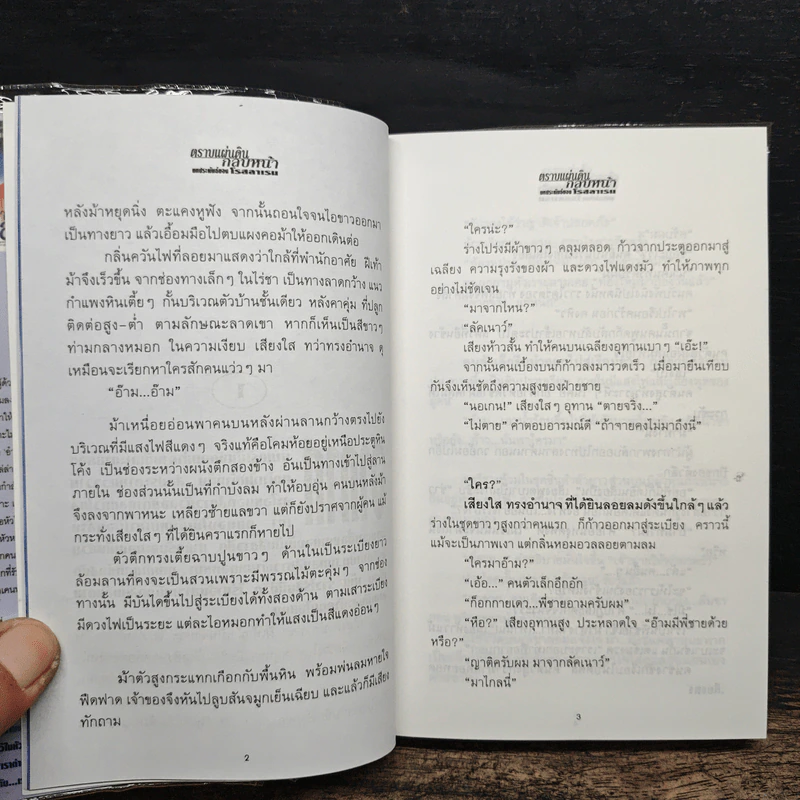 ตราบแผ่นดิน
กลบหน้า
หลังม้าหยุดนิ่ง ตะแคงหูฟัง จากนั้นถอนใจจนไอขาวออกมา
เป็นทางยาว แล้วเอื้อมมือไปตบแผงคอม้าให้ออกเดินต่อ
กลิ่นควันไฟที่ลอยมาแสดงว่าใกล้ที่พำนักอาศัย ฝีเท้า
ม้าจึงเร็วขึ้น จากช่องทางเล็กๆ ในไร่ชา เป็นทางลาดกว้าง แนว
กำแพงหินเตี้ยๆ กั้นบริเวณตัวบ้านชั้นเดียว หลังคาคุ่ม ที่ปลูก
ติดต่อสูง-ต่ำ ตามลักษณะลาดเขา หากก็เห็นเป็นสีขาวๆ
ท่ามกลางหมอก ในความเงียบ เสียงใส ทว่าทรงอำนาจ ดุ
เหมือนจะเรียกหาใครสักคนแว่วๆ มา
“อ๊าม...อ๊าม”
ม้าเหนื่อยอ่อนพาคนบนหลังผ่านลานกว้างตรงไปยัง
บริเวณที่มีแสงไฟสีแดงๆ จริงแท้คือโคมห้อยอยู่เหนือประตูหิน
โค้ง เป็นช่องระหว่างผนังตึกสองข้าง อันเป็นทางเข้าไปสู่ลาน
ภายใน ช่องส่วนนั้นเป็นที่กำบังลม ทำให้อบอุ่น คนบนหลังม้า
จึงลงจากพาหนะ เหลียวซ้ายแลขวา แต่ก็ยังปราศจากผู้คน แม้
กระทั่งเสียงใสๆ ที่ได้ยินคราแรกก็หายไป
ตัวตึกทรงเตี้ยฉาบปูนขาวๆ ด้านในเป็นระเบียงยาว
ล้อมลานที่คงจะเป็นสวนเพราะมีพรรณไม้ตะคุ่มๆ จากช่อง
ทางนั้น มีบันไดขึ้นไปสู่ระเบียงได้ทั้งสองด้าน ตามเสาระเบียง
มีดวงไฟเป็นระยะ แต่ละไอหมอกทำให้แสงเป็นสีแดงอ่อนๆ
ม้าตัวสูงกระแทกเกือกกับพื้นหิน พร้อมพ่นลมหายใจ
ฟืดฟาด เจ้าของจึงหันไปลูบสันจมูกเย็นเฉียบ และแล้วก็มีเสียง
ทักถาม
2
ตราบแผ่นดิน
กลบหน้า
“ใครน่ะ?”
ร่างโปร่งมีผ้าขาวๆ คลุมตลอด ก้าวจากประตูออกมาสู่
เฉลียง ความรุงรังของผ้า และดวงไฟแดงมัว ทำให้ภาพทุก
อย่างไม่ชัดเจน
“มาจากไหน?”
“ลัคเนาว์”
เสียงห้าวสั้น ทำให้คนบนเฉลียงอุทานเบาๆ “เอ๊ะ!”
จากนั้นคนเบื้องบนก็ก้าวลงมารวดเร็ว เมื่อมายืนเทียบ
กันจึงเห็นชัดถึงความสูงของฝ่ายชาย
“นอเกน! เสียงใสๆ อุทาน “ตายจริง...”
“ไม่ตาย” คำตอบอารมณ์ดี “ถ้าตายคงไม่มาถึงนี่”
“ใคร?”
เสียงใส ทรงอำนาจ ที่ได้ยินลอยลมดังขึ้นใกล้ๆ แล้ว
ร่างในชุดขาวๆสูงกว่าคนแรก ก็ก้าวออกมาสู่ระเบียง คราวนี้
แม้จะเป็นภาพเงา แต่กลิ่นหอมอวลลอยตามลม
“ใครมาอ๊าม?”
“เอ้อ...” คนตัวเล็กอึกอัก
“ก็อกกายเดว...พี่ชายอามครับผม”
“หือ?” เสียงอุทานสูง ประหลาดใจ “อ๊ามมีพี่ชายด้วย
หรือ?”
“ญาติครับผม มาจากลัคเนาว์”
“มาไกลนี่”
3